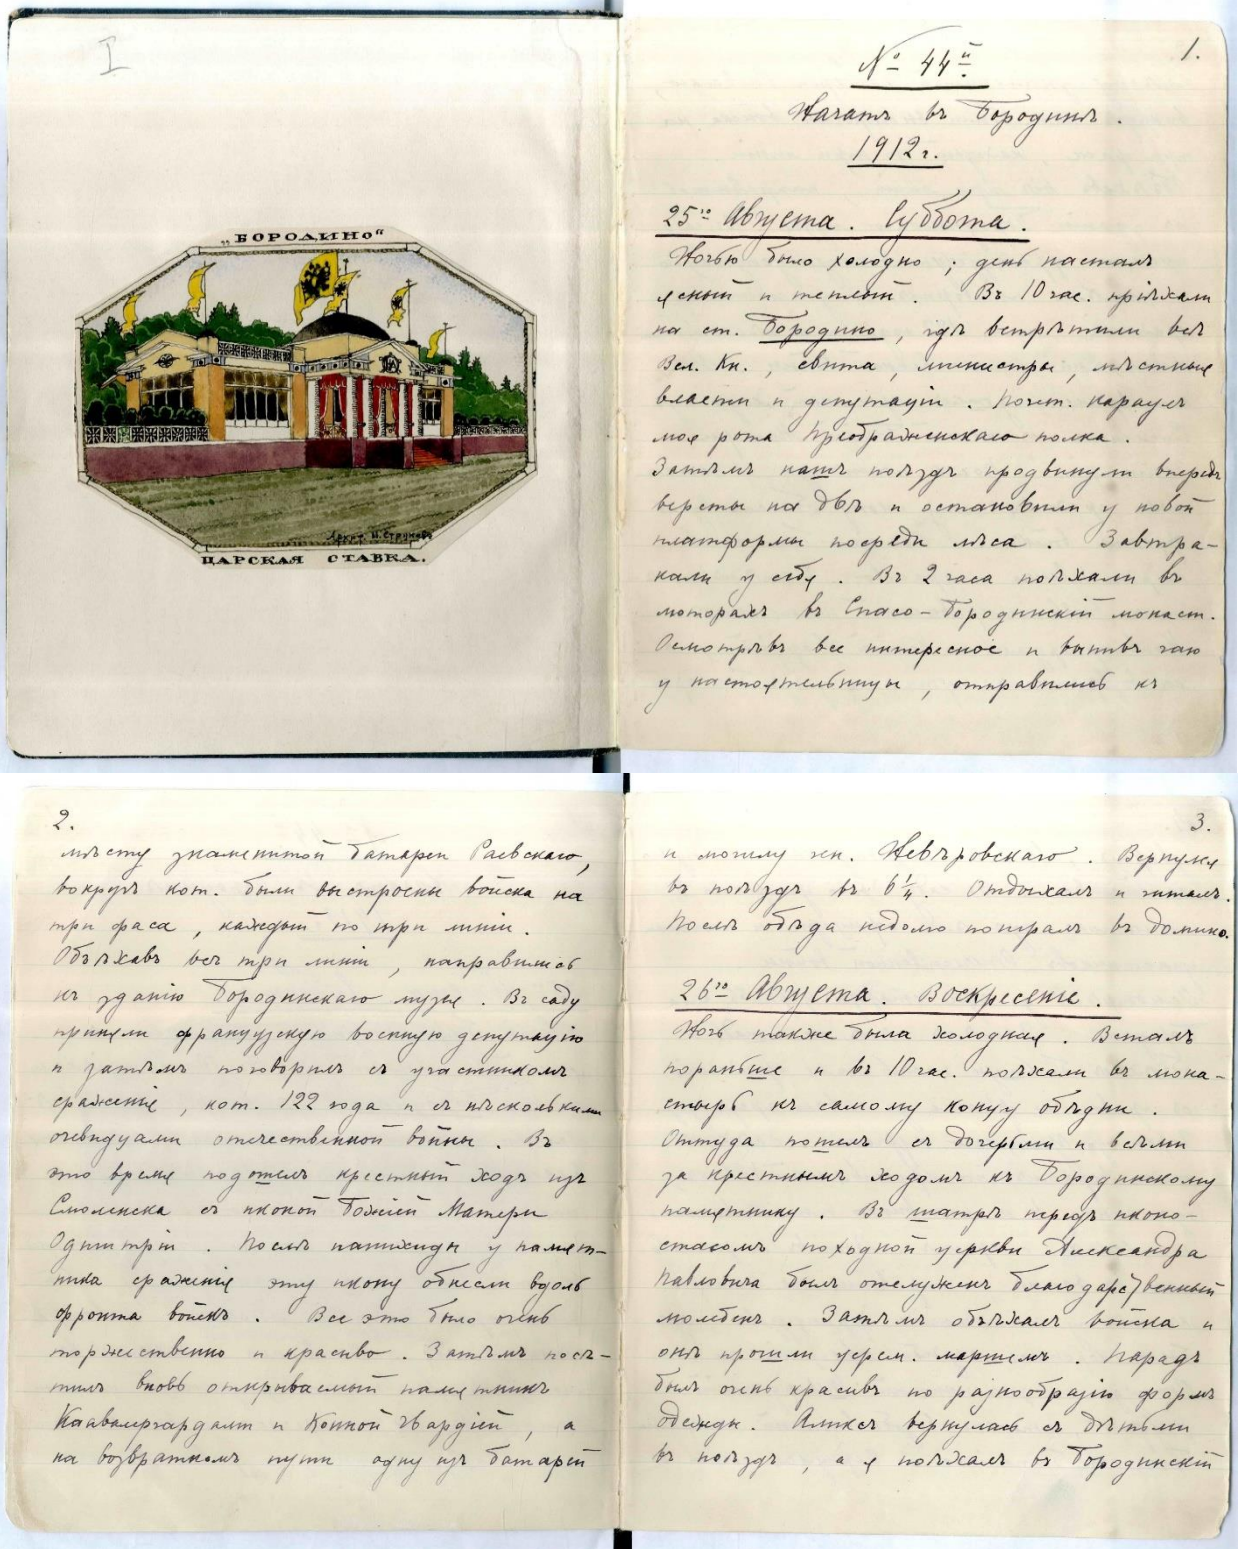 I
„БОРОДИНО“
Архит. П. Струковъ
ЦАРСКАЯ СТАВКА.
1.
№ 44й
Начатъ въ Бородинѣ.
1912 г.
25го Августа. Суббота.
Ночью было холодно; день насталъ
ясный и теплый. Въ 10 час. пріѣхали
на ст. Бородино, гдѣ встрѣтили всѣ
Вел. Кн., свита, министры, мѣстныя
власти и депутаціи. Почет. караулъ
моя рота Преображенскаго полка.
Затѣмъ нашъ поѣздъ продвинули впередъ
версты на двѣ и остановили у новой
платформы посреди лѣса. Завтра-
кали у себя. Въ 2 часа поѣхали въ
моторахъ въ Спасо-Бородинскій монаст.
Осмотрѣвъ все интересное и выпивъ чаю
у настоятельницы, отправились къ
2.
мѣсту знаменитой батареи Раевскаго,
вокругъ кот. были выстроены войска на
три фаса, каждый по три линіи.
Объѣхавъ всѣ три линіи, направились
къ зданію Бородинскаго музея. Въ саду
приняли французскую военную депутацію
и затѣмъ поговорилъ съ участникомъ
сраженія, кот. 122 года и съ нѣсколькими
очевидцами отечественной войны. Въ
это время подошелъ крестный ходъ изъ
Смоленска съ иконой Божіей Матери
Одигитріи. Послѣ панихиды у памят-
ника сраженія эту икону обнесли вдоль
фронта войскъ. Все это было очень
торжественно и красиво. Затѣмъ посѣ-
тилъ вновь открываемый памятникъ
Кавалергардамъ и Конной Гвардіей, а
на возвратномъ пути одну изъ батарей
3.
и могилу ген. Невѣровскаго. Вернулся
въ поѣздъ въ 6¼. Отдыхалъ и читалъ.
Послѣ обѣда недолго поигралъ въ домино.
26го Августа. Воскресеніе.
Ночь также была холодная. Всталъ
пораньше и въ 10 час. поѣхали въ мона-
стырь къ самому концу обѣдни.
Оттуда пошелъ съ дочерьми и всѣми
за крестнымъ ходомъ къ Бородинскому
памятнику. Въ шатрѣ передъ иконо-
стасомъ походной церкви Александра
Павловича былъ отслуженъ благодарственный
молебенъ. Затѣмъ объѣхалъ войска и
онѣ прошли церем. маршемъ. Парадъ
былъ очень красивъ по разнообразію формъ
одежды. Аликсъ вернулась съ дѣтьми
въ поѣздъ, а я поѣхалъ въ Бородинскій